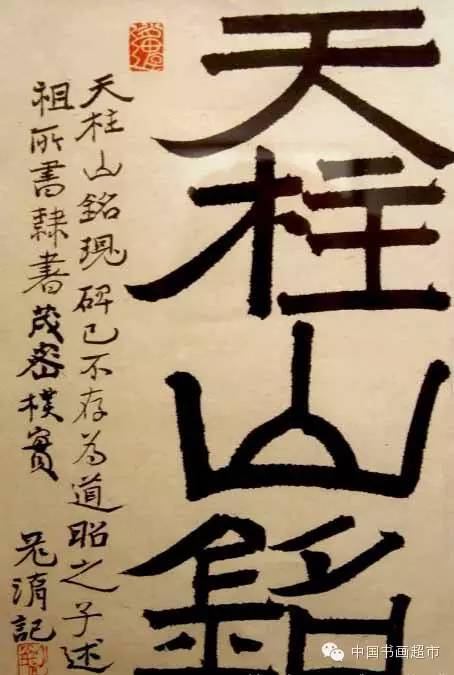 天柱山銘
天柱山銘現碑已不存為道昭之子述
祖所書隸書茂密樸實
記
中国书画超市